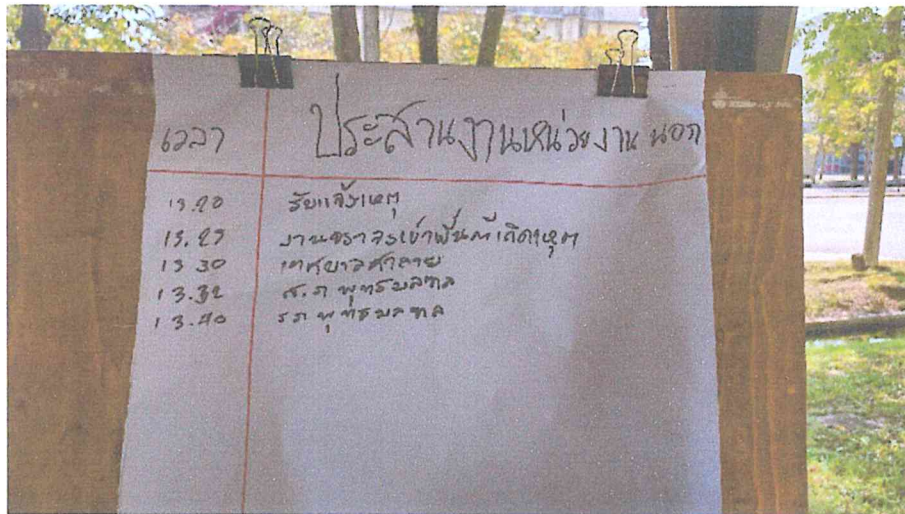 เวลา ประสานงานหน่วยงานนอก
13.20 รับแจ้งเหตุ
13.25 งานจราจรเข้าพื้นที่เกิดเหตุ
13.30 เทศบาลศาลายา
13.32 ส.ภ พุทธมณฑล
13.40 รพ พุทธมณฑล